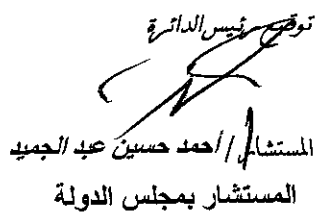 توقيع رئيس الدائرة
المستشار//احمد حسين عبد الحميد
المستشار بمجلس الدولة